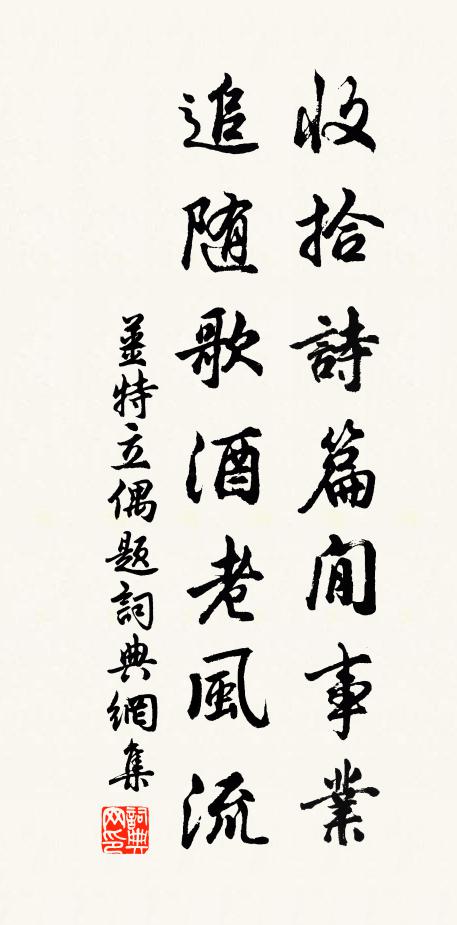 收拾詩篇閒事業
追随歌酒老風流
薑特立偶題詞典網集
詞典网印